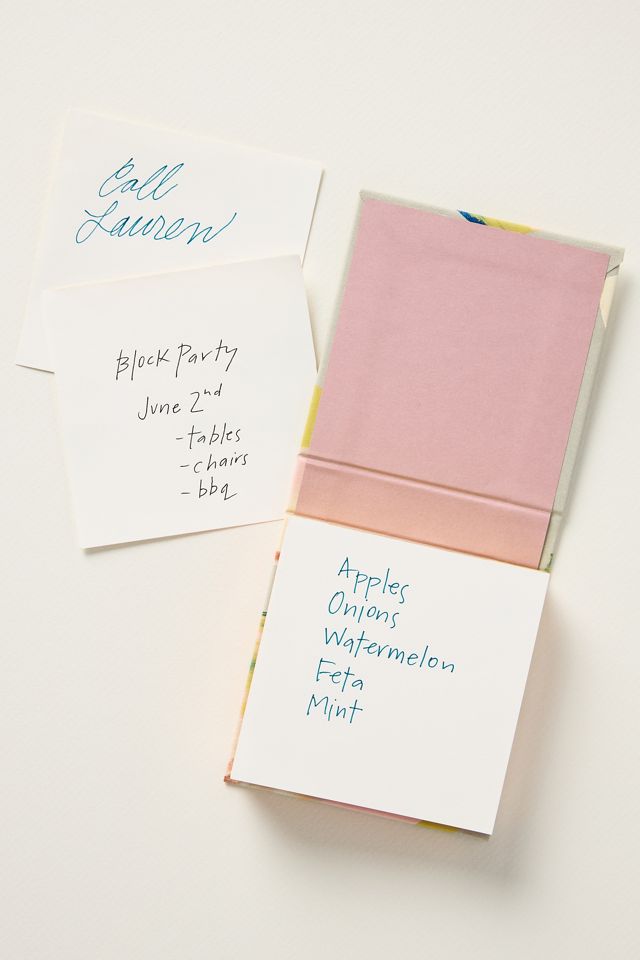 Call
Lauren
Block Party
June 2nd
-tables
-chairs
-bbq
Apples
Onions
Watermelon
Feta
Mint